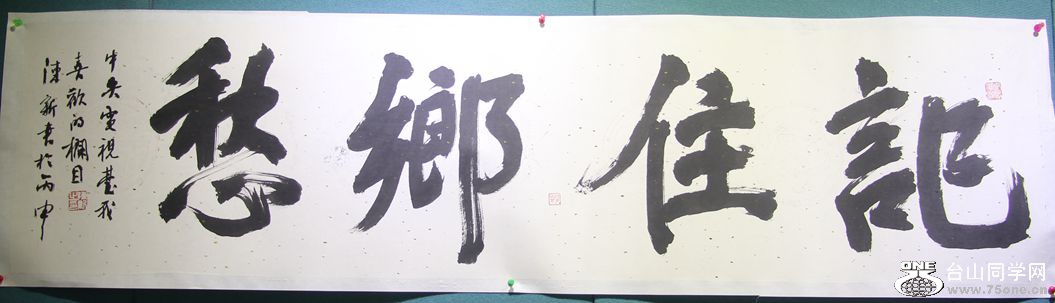 記住鄉愁
中央電視臺我
喜歡的欄目
陳新書於丙申
ONE
台山同学网
www.75one.cn